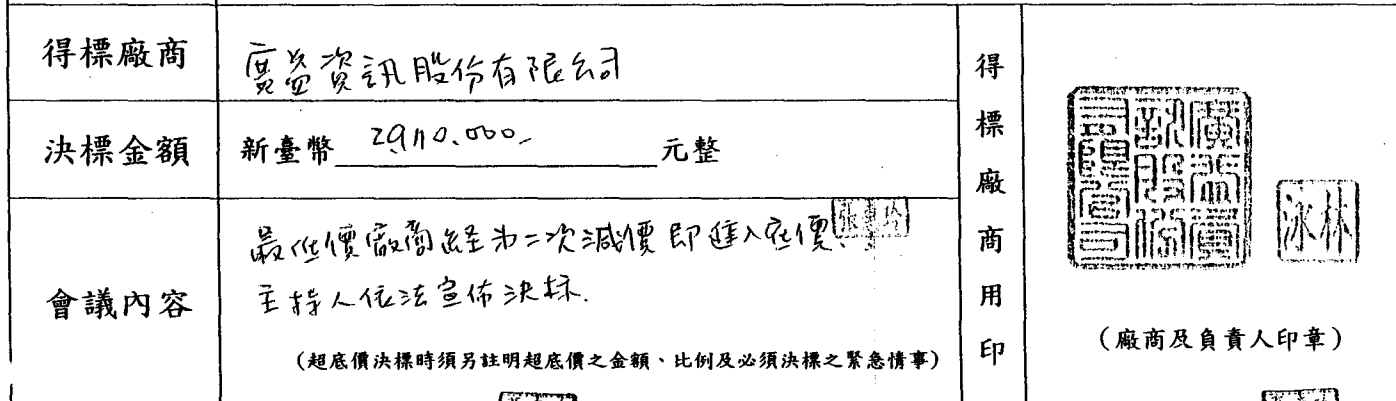 得標廠商
廣益資訊股份有限公司
決標金額
新臺幣 元整
會議內容
最低價廠商經第二次減價即進入底價
主持人依法宣佈決标.
(超底價決標時須另註明超底價之金額、比例及必須決標之緊急情事)
得標廠商用印
廣益資訊股份有限公司
林泳
(廠商及負責人印章)